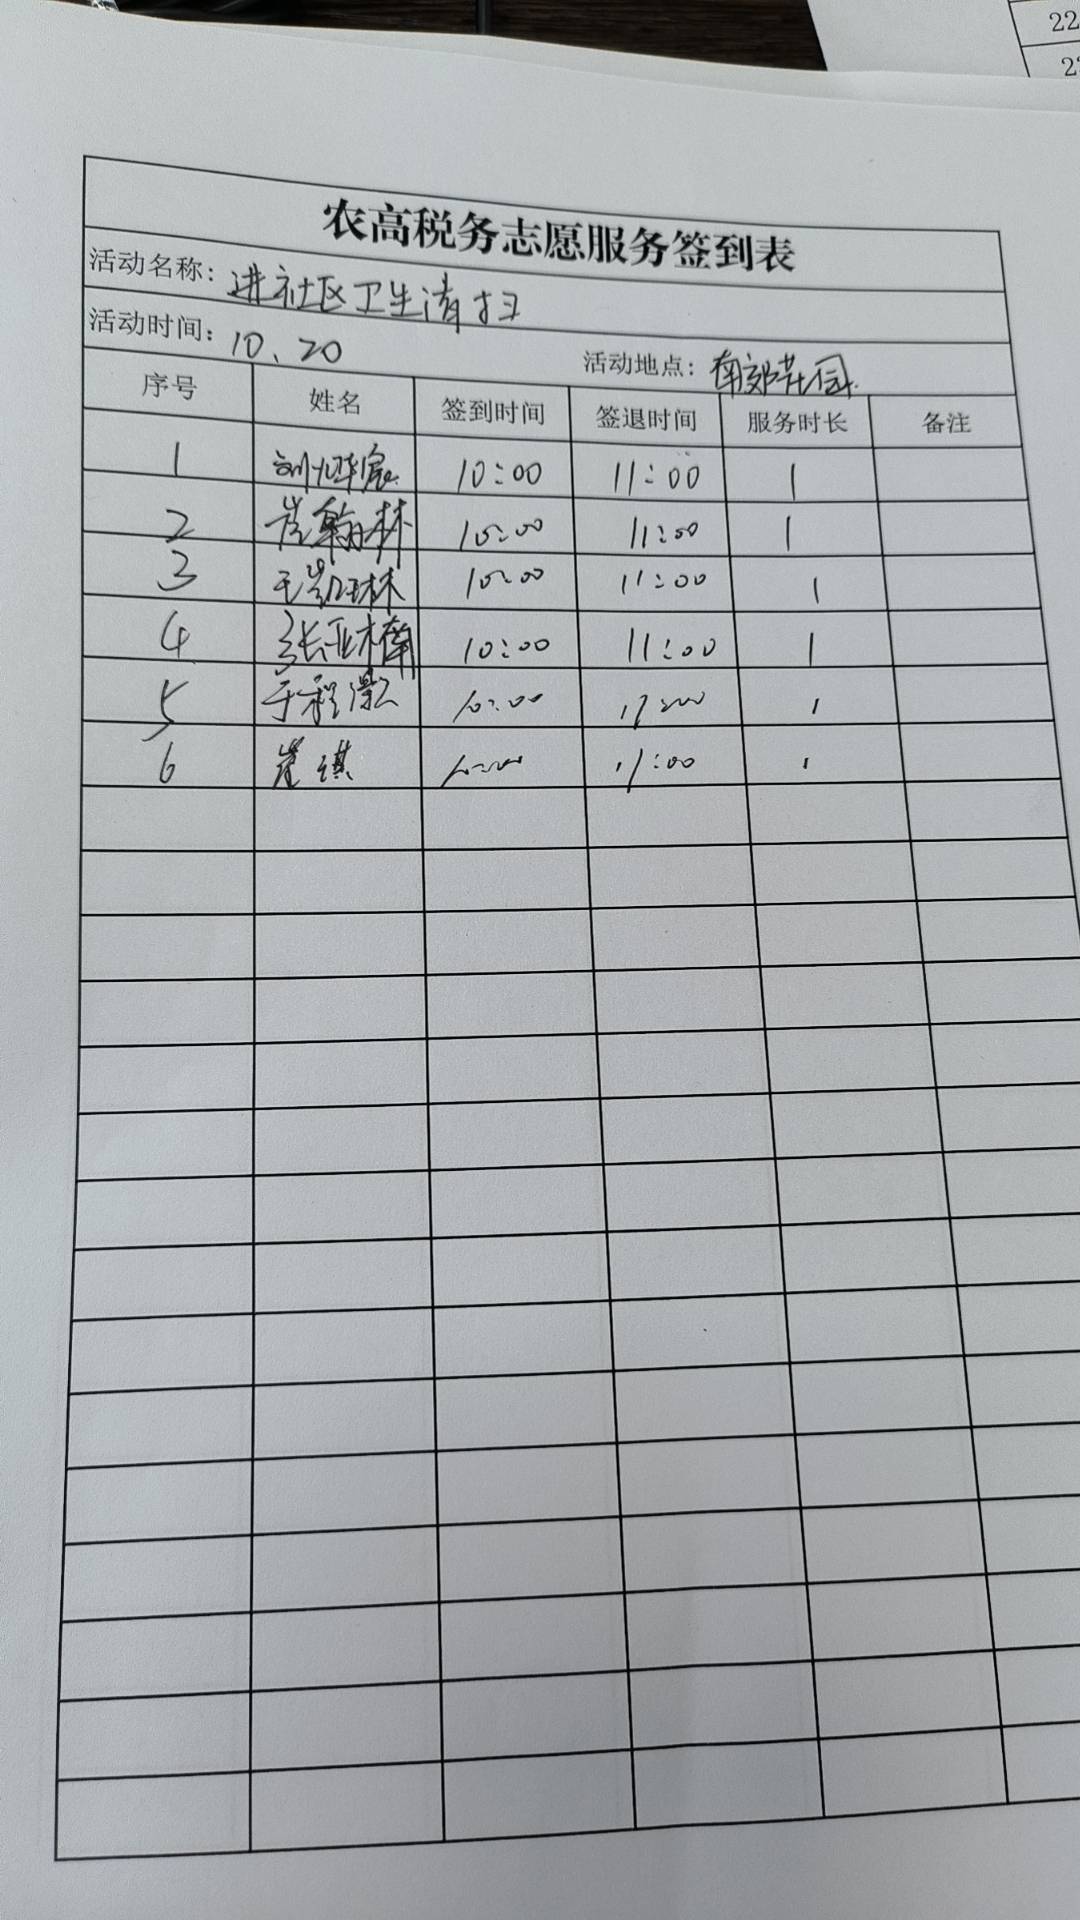 22
农高税务志愿服务签到表
活动名称: 进社区卫生清扫
活动时间: 10、20 活动地点: 南郊花园
序号 姓名 签到时间 签退时间 服务时长 备注
1 10:00 11:00 1
2 崔翰林 10:00 11:00 1
3 王凯琳 10:00 11:00 1
4 张亚楠 10:00 11:00 1
5 于程灏 10:00 11:00 1
6 崔琪 10:00 11:00 1